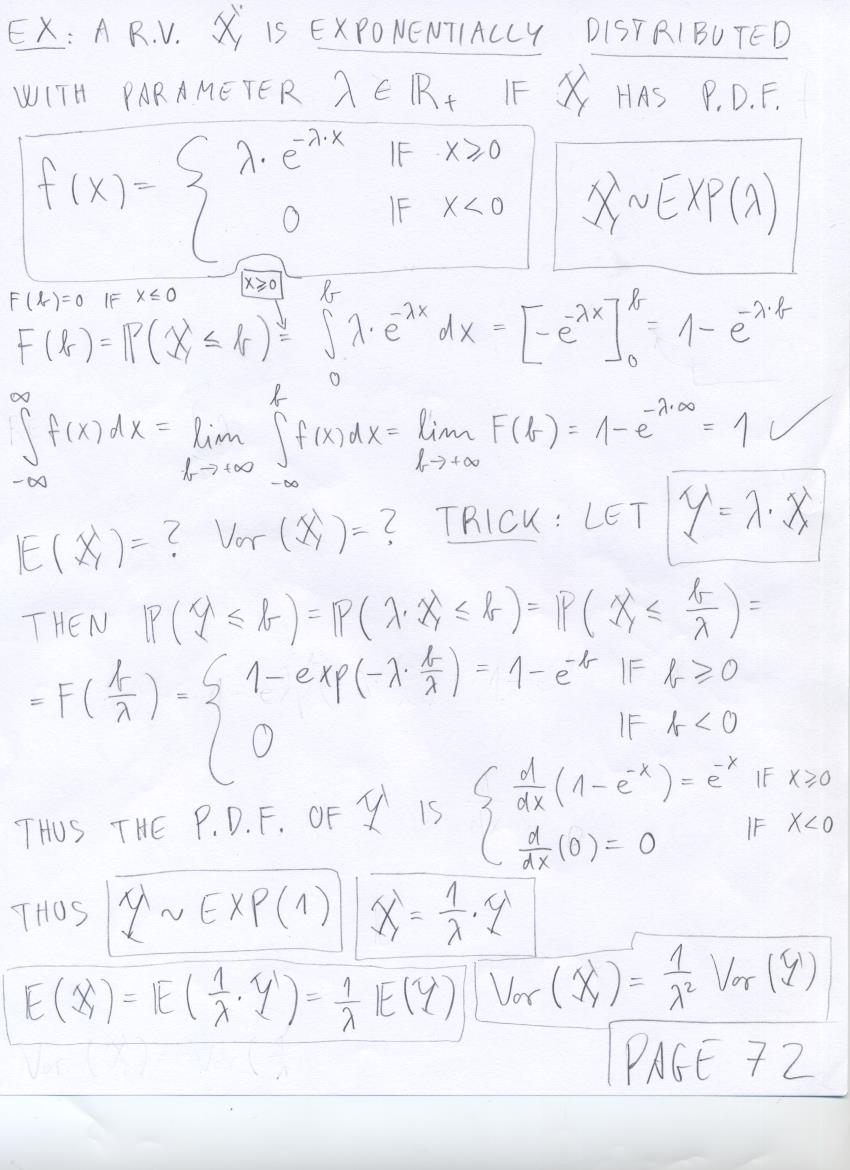 EX: A R.V. X IS EXPONENTIALLY DISTRIBUTED
WITH PARAMETER λ ∈ ℝ₊ IF X HAS P.D.F.
f(x) = { λ· e^{-λ·x} IF x ≥ 0
0 IF x < 0
X ~ EXP(λ)
F(b)=0 IF x ≤ 0
x ≥ 0
F(b) = ℙ(X ≤ b) = ∫_0^b λ· e^{-λx} dx = [-e^{-λx}]_0^b = 1 - e^{-λ·b}
∫_{-∞}^{∞} f(x) dx = lim_{b→+∞} ∫_{-∞}^b f(x) dx = lim_{b→+∞} F(b) = 1 - e^{-λ·∞} = 1 ✓
𝔼(X) = ? Var(X) = ? TRICK: LET Y = λ·X
THEN ℙ(Y ≤ b) = ℙ(λ·X ≤ b) = ℙ(X ≤ b/λ) =
= F(b/λ) = { 1 - exp(-λ· b/λ) = 1 - e^{-b} IF b ≥ 0
0 IF b < 0
THUS THE P.D.F. OF Y IS { d/dx (1 - e^{-x}) = e^{-x} IF x ≥ 0
d/dx (0) = 0 IF x < 0
THUS Y ~ EXP(1) X = 1/λ · Y
𝔼(X) = 𝔼(1/λ · Y) = 1/λ 𝔼(Y) Var(X) = 1/λ² Var(Y)
PAGE 72